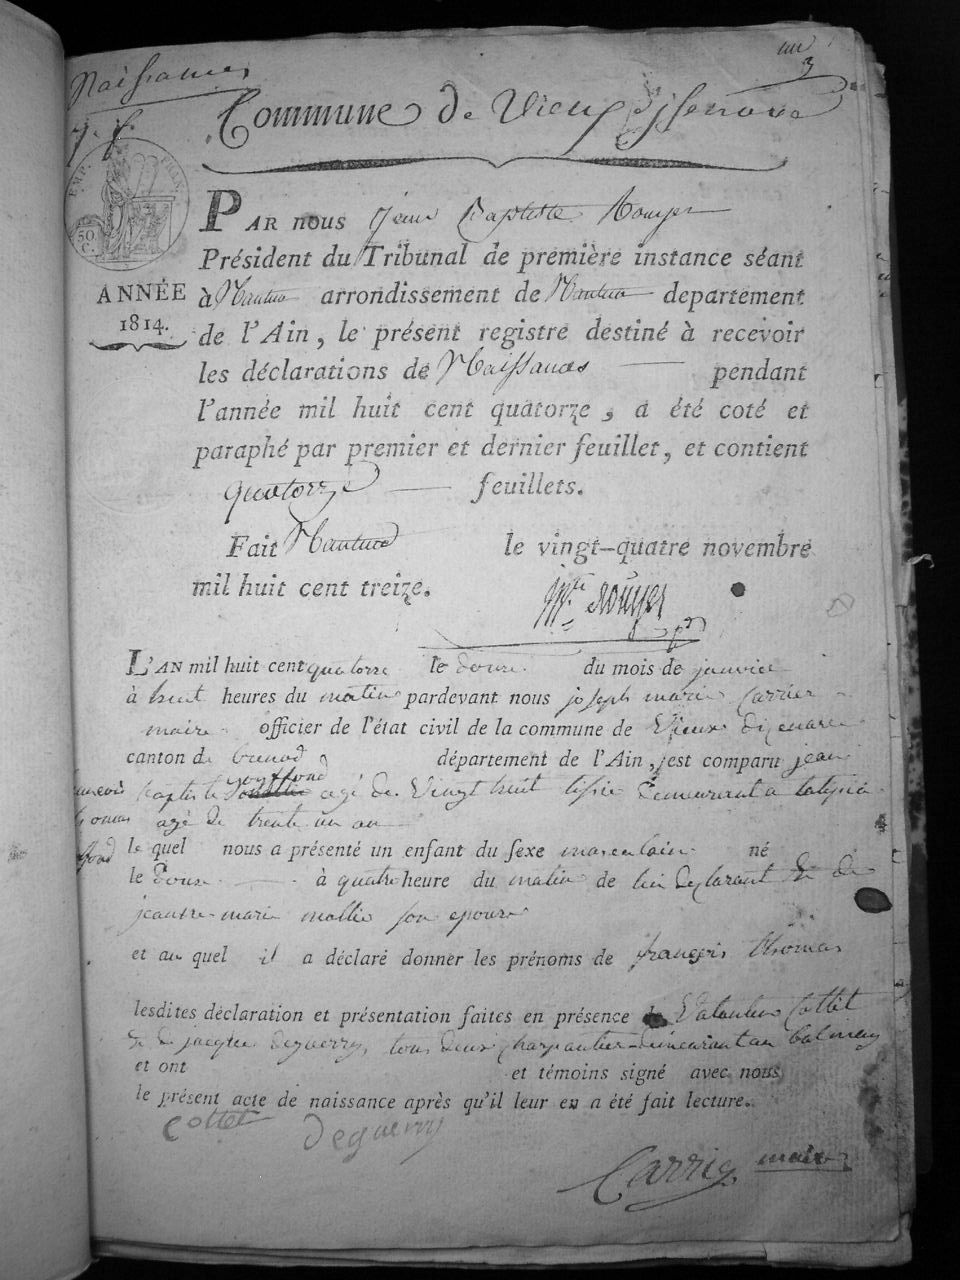 Naissances
un
3
Commune de Vieux d'Isenave
EMP. FRAN.
50.
C.
ANNÉE
1814.
PAR nous Jean Baptiste Rouyer
Président du Tribunal de première instance séant
à Nantua arrondissement de Nantua departement
de l'Ain, le présent registre destiné à recevoir
les déclarations de Naissances pendant
l'année mil huit cent quatorze, a été coté et
paraphé par premier et dernier feuillet, et contient
quatorze feuillets.
Fait Nantua le vingt-quatre novembre
mil huit cent treize.
Rouyer
L'AN mil huit cent quatorze le douze du mois de janvier
à huit heures du matin pardevant nous joseph marie Carrier
maire officier de l'état civil de la commune de Vieux dizenave
canton de brenod département de l'Ain, est comparu jean
françois baptiste goyffond agé de Vingt huit demeurant a
thomas agé de trente un an
fond le quel nous a présenté un enfant du sexe masculain né
le Douze à quatre heure du matin de lui Déclarant et de
marie son epouse
et au quel il a déclaré donner les prénoms de françois thomas
lesdites déclaration et présentation faites en présence de Valentin Cottet
& de jacque deguerry tous deux charpantier demeurant au balmay
et ont et témoins signé avec nous
le présent acte de naissance après qu'il leur en a été fait lecture.
Cottet deguerry
Carrier maire